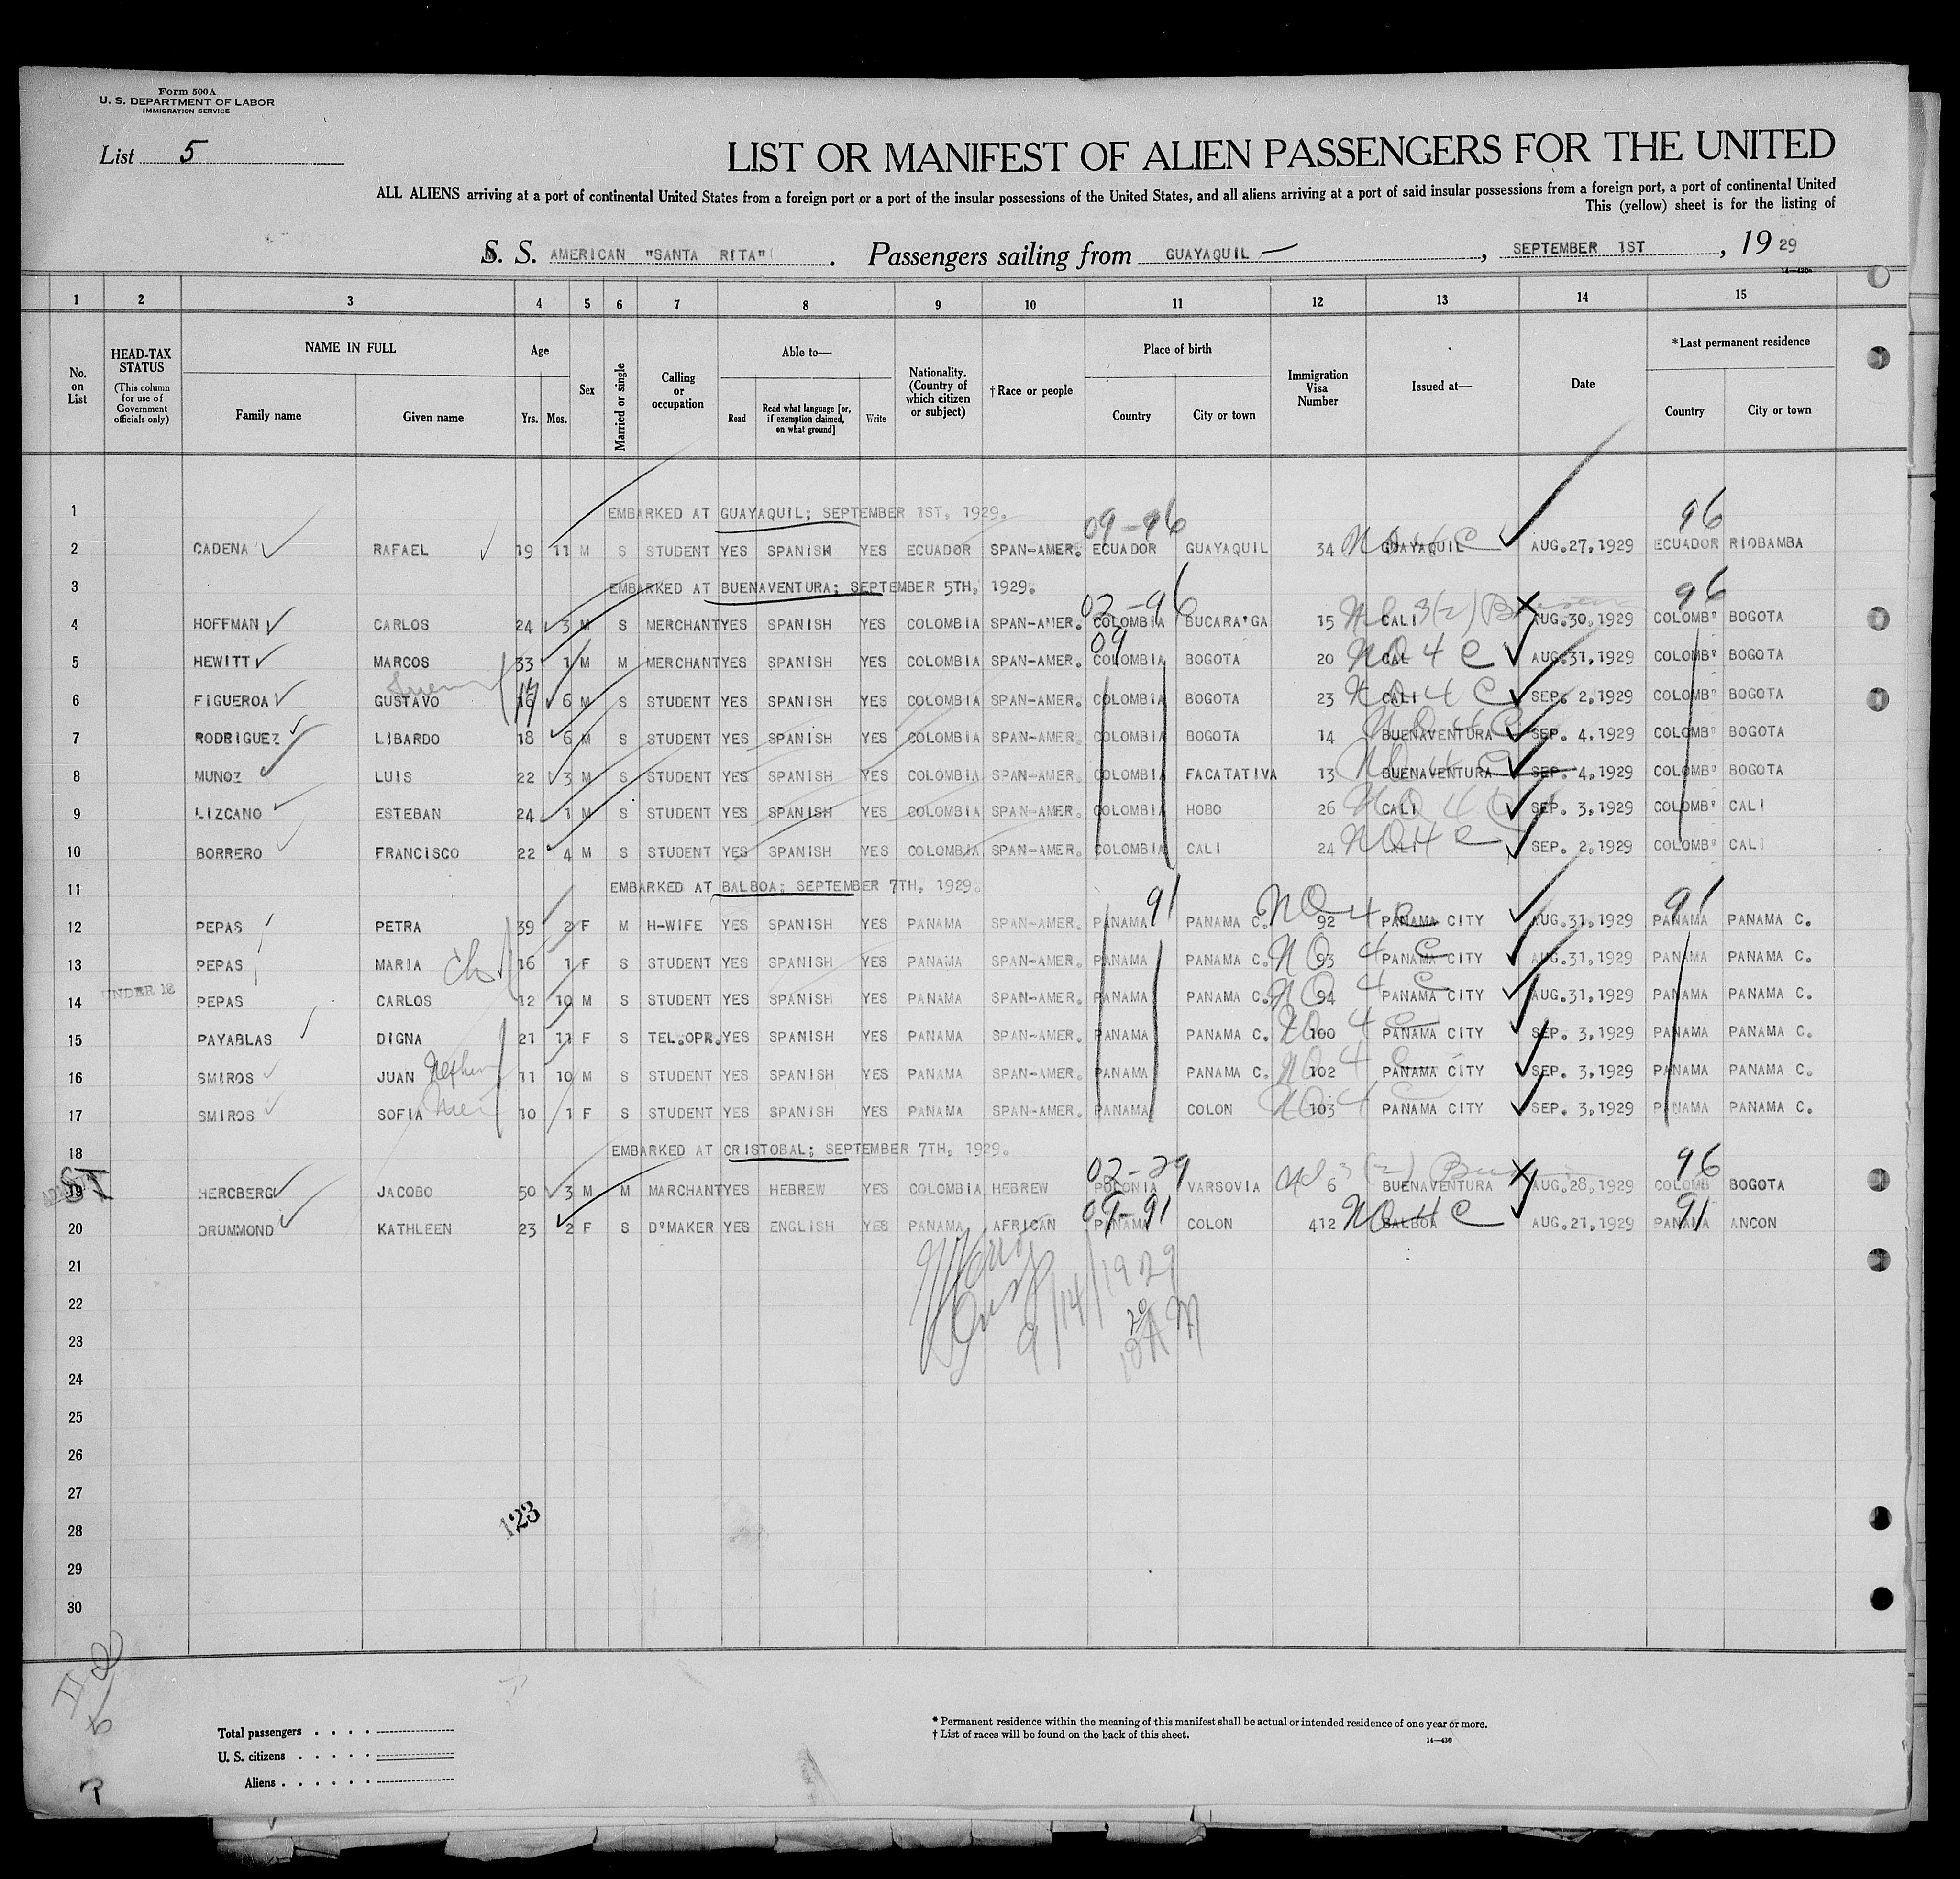 Form 500A
U. S. DEPARTMENT OF LABOR
IMMIGRATION SERVICE
List 5
LIST OR MANIFEST OF ALIEN PASSENGERS FOR THE UNITED
ALL ALIENS arriving at a port of continental United States from a foreign port or a port of the insular possessions of the United States, and all aliens arriving at a port of said insular possessions from a foreign port, a port of continental United
This (yellow) sheet is for the listing of
S. S. AMERICAN "SANTA RITA" . Passengers sailing from GUAYAQUIL , SEPTEMBER 1ST , 19 29
14-430
1 2 3 4 5 6 7 8 9 10 11 12 13 14 15
No. on List
HEAD-TAX STATUS (This column for use of Government officials only)
NAME IN FULL Family name Given name
Age Yrs. Mos.
Sex
Married or single
Calling or occupation
Able to— Read Read what language [or, if exemption claimed, on what ground] Write
Nationality. (Country of which citizen or subject)
†Race or people
Place of birth Country City or town
Immigration Visa Number
Issued at—
Date
*Last permanent residence Country City or town
1 EMBARKED AT GUAYAQUIL; SEPTEMBER 1ST, 1929.
09-96 96
2 CADENA RAFAEL 19 11 M S STUDENT YES SPANISH YES ECUADOR SPAN-AMER. ECUADOR GUAYAQUIL 34 NO 4 C GUAYAQUIL AUG.27,1929 ECUADOR RIOBAMBA
3 EMBARKED AT BUENAVENTURA; SEPTEMBER 5TH, 1929.
02-96 96
4 HOFFMAN CARLOS 24 3 M S MERCHANT YES SPANISH YES COLOMBIA SPAN-AMER. COLOMBIA BUCARA'GA 15 CALI 3(2) AUG.30,1929 COLOMB' BOGOTA
09
5 HEWITT MARCOS 33 1 M M MERCHANT YES SPANISH YES COLOMBIA SPAN-AMER. COLOMBIA BOGOTA 20 NO 4 C CAL AUG.31,1929 COLOMB' BOGOTA
6 FIGUEROA GUSTAVO 16 17 6 M S STUDENT YES SPANISH YES COLOMBIA SPAN-AMER. COLOMBIA BOGOTA 23 NO 4 C CALI SEP. 2,1929 COLOMB' BOGOTA
7 RODRIGUEZ LIBARDO 18 6 M S STUDENT YES SPANISH YES COLOMBIA SPAN-AMER. COLOMBIA BOGOTA 14 NO 4 C BUENAVENTURA SEP. 4,1929 COLOMB' BOGOTA
8 MUNOZ LUIS 22 3 M S STUDENT YES SPANISH YES COLOMBIA SPAN-AMER. COLOMBIA FACATATIVA 13 NO 4 C BUENAVENTURA SEP. 4,1929 COLOMB' BOGOTA
9 LIZCANO ESTEBAN 24 1 M S STUDENT YES SPANISH YES COLOMBIA SPAN-AMER. COLOMBIA HOBO 26 NO 4 C CALI SEP. 3,1929 COLOMB' CALI
10 BORRERO FRANCISCO 22 4 M S STUDENT YES SPANISH YES COLOMBIA SPAN-AMER. COLOMBIA CALI 24 NO 4 C CALI SEP. 2,1929 COLOMB' CALI
11 EMBARKED AT BALBOA; SEPTEMBER 7TH, 1929.
91 91
12 PEPAS PETRA 39 2 F M H-WIFE YES SPANISH YES PANAMA SPAN-AMER. PANAMA PANAMA C. 92 NO 4 C PANAMA CITY AUG.31,1929 PANAMA PANAMA C.
13 PEPAS MARIA ch 16 1 F S STUDENT YES SPANISH YES PANAMA SPAN-AMER. PANAMA PANAMA C. 93 NO 4 C PANAMA CITY AUG.31,1929 PANAMA PANAMA C.
14 UNDER 16 PEPAS CARLOS 12 10 M S STUDENT YES SPANISH YES PANAMA SPAN-AMER. PANAMA PANAMA C. 94 NO 4 C PANAMA CITY AUG.31,1929 PANAMA PANAMA C.
15 PAYABLAS DIGNA 21 11 F S TEL.OPR. YES SPANISH YES PANAMA SPAN-AMER. PANAMA PANAMA C. 100 NO 4 C PANAMA CITY SEP. 3,1929 PANAMA PANAMA C.
16 SMIROS JUAN Nephew 11 10 M S STUDENT YES SPANISH YES PANAMA SPAN-AMER. PANAMA PANAMA C. 102 NO 4 C PANAMA CITY SEP. 3,1929 PANAMA PANAMA C.
17 SMIROS SOFIA 10 1 F S STUDENT YES SPANISH YES PANAMA SPAN-AMER. PANAMA COLON 103 NO 4 C PANAMA CITY SEP. 3,1929 PANAMA PANAMA C.
18 EMBARKED AT CRISTOBAL; SEPTEMBER 7TH, 1929.
02-29 96
19 HERCBERG JACOBO 50 3 M M MARCHANT YES HEBREW YES COLOMBIA HEBREW POLONIA VARSOVIA 6 3(2) BUENAVENTURA AUG.28,1929 COLOMB BOGOTA
09-91 91
20 DRUMMOND KATHLEEN 23 2 F S D'MAKER YES ENGLISH YES PANAMA AFRICAN PANAMA COLON 412 NO 4 C BALBOA AUG.21,1929 PANAMA ANCON
21
9/14/1929
22
23
24
25
26
27
123
28
29
30
Total passengers
U. S. citizens
Aliens
* Permanent residence within the meaning of this manifest shall be actual or intended residence of one year or more.
† List of races will be found on the back of this sheet.
14-430